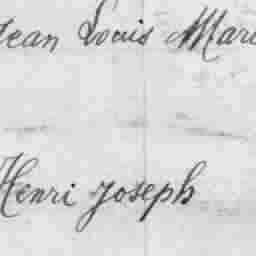 Jean Louis Mari
Henri Joseph